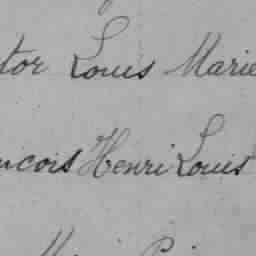 tor Louis Marie
ncois Henri Louis